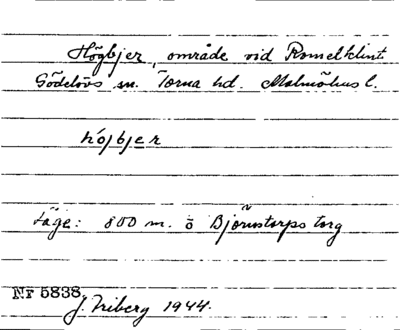 Högbjer, område vid Romelklint
Gödelövs sn. Torna hd. Malmöhus l.
højbjer
Läge: 800 m. ö Björnstorps torg
Nr 5838.
J. Friberg 1944.